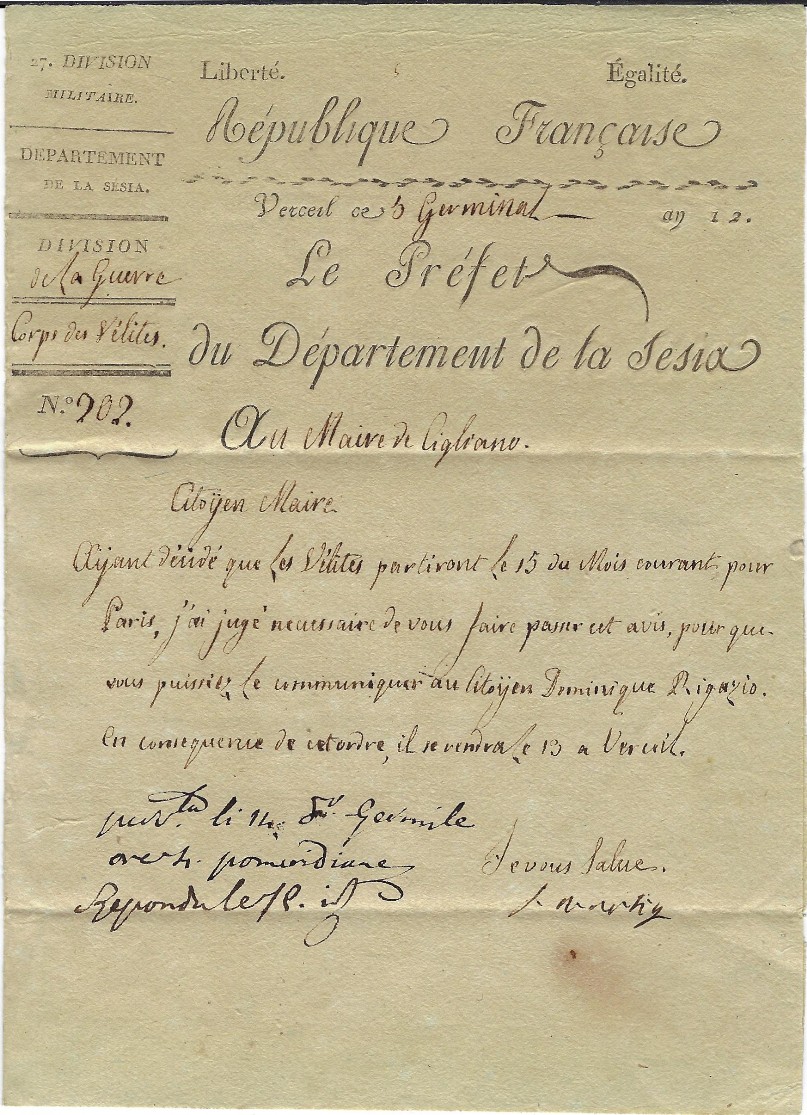 27. DIVISION
MILITAIRE.
DEPARTEMENT
DE LA SÉSIA.
DIVISION
de la Guerre
Corps des Vélites.
N.º 202.
Liberté. Égalité.
République Française
Verceil ce 5 Germinal an 12.
Le Préfet
du Département de la Sesia
Au Maire de Cigliano.
Citoÿen Maire
Aÿant décidé que les Vélites partiront le 15 du Mois courant pour
Paris, j'ai jugé necessaire de vous faire passer cet avis, pour que
vous puissiez le communiquer au Citoÿen Dominique Rigazio.
En consequence de cet ordre, il se rendra le 13 a Verceil.
li Germile
ore pomeridiane
Repondu le
Je vous salue.